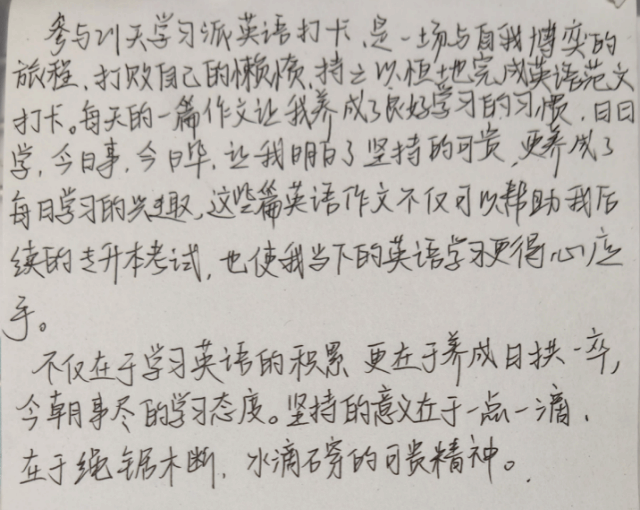 参与21天学习派英语打卡,是一场与自我博弈的
旅程,打败自己的懒惰,持之以恒地完成英语范文
打卡。每天的一篇作文让我养成了良好学习的习惯,日日
学,今日事,今日毕,让我明白了坚持的可贵,更养成了
每日学习的兴趣,这些篇英语作文不仅可以帮助我后
续的专升本考试,也使我当下的英语学习更得心应
手。
不仅在于学习英语的积累,更在于养成日拱一卒,
今朝事尽的学习态度。坚持的意义在于一点一滴,
在于绳锯木断,水滴石穿的可贵精神。